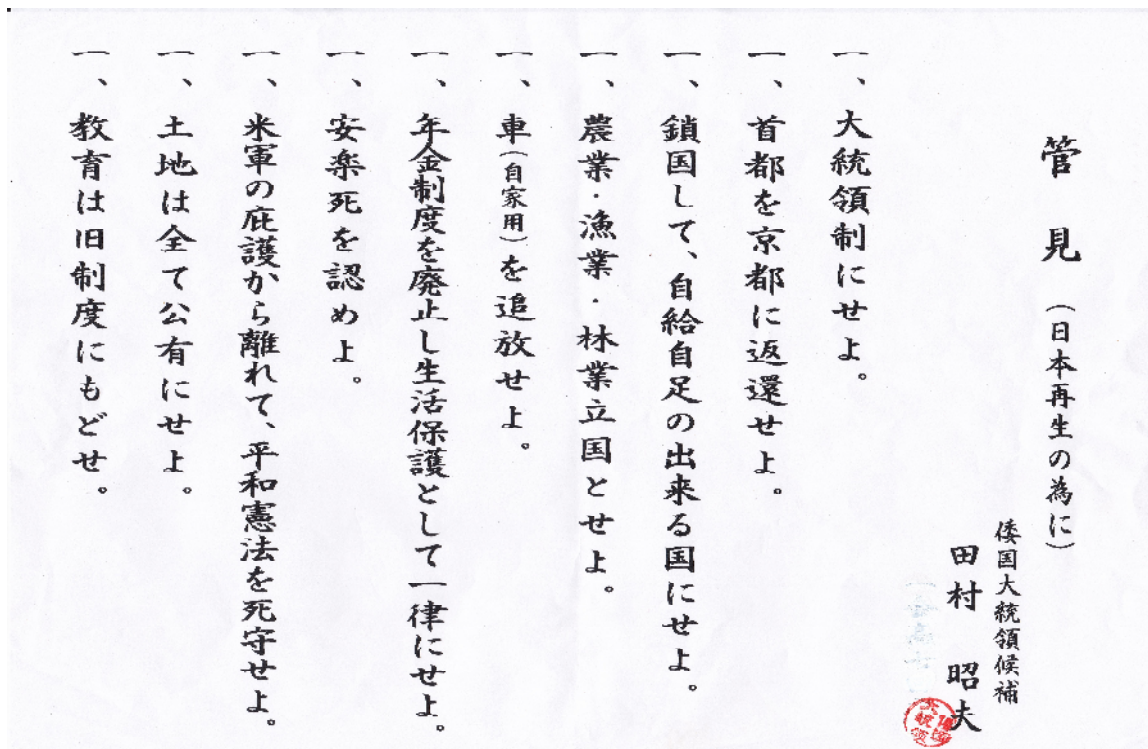 管見（日本再生の為に）
倭国大統領候補
田村 昭夫
一、大統領制にせよ。
一、首都を京都に返還せよ。
一、鎖国して、自給自足の出来る国にせよ。
一、農業・漁業・林業立国とせよ。
一、車（自家用）を追放せよ。
一、年金制度を廃止し生活保護として一律にせよ。
一、安楽死を認めよ。
一、米軍の庇護から離れて、平和憲法を死守せよ。
一、土地は全て公有にせよ。
一、教育は旧制度にもどせ。